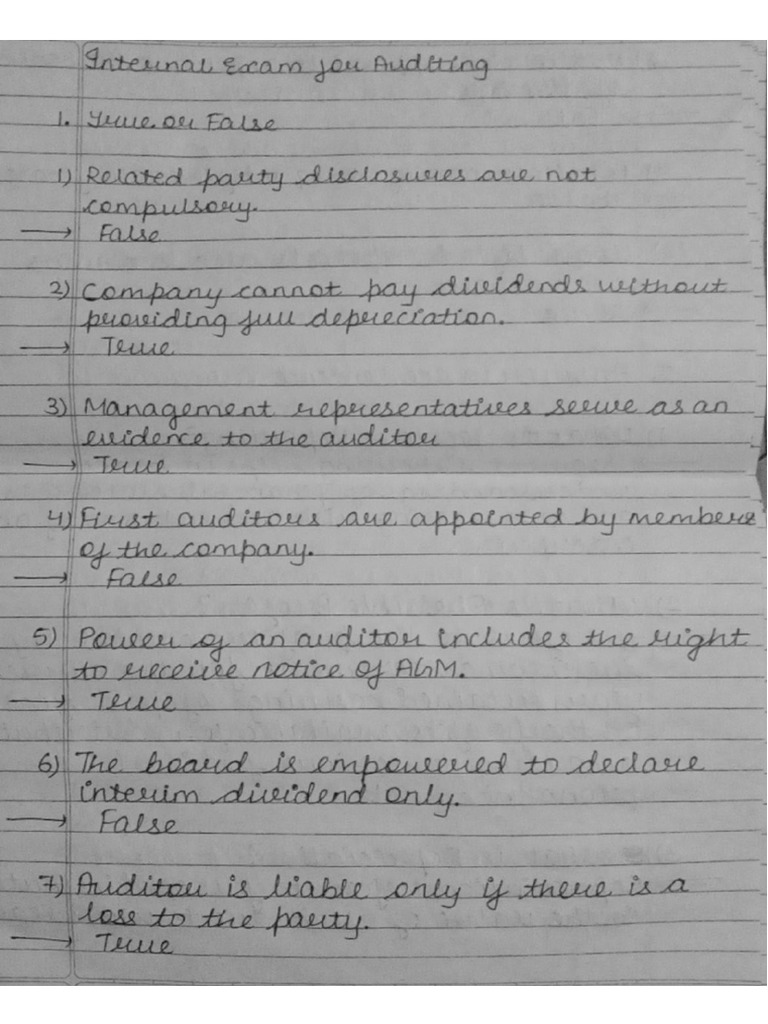 Internal Exam for Auditing
1. True or False
1) Related party disclosures are not
compulsory.
→ False
2) Company cannot pay dividends without
providing full depreciation.
→ True
3) Management representatives serve as an
evidence to the auditor
→ True
4) First auditors are appointed by members
of the company.
→ False
5) Power of an auditor includes the right
to receive notice of AGM.
→ True
6) The board is empowered to declare
interim dividend only.
→ False
7) Auditor is liable only if there is a
loss to the party.
→ True